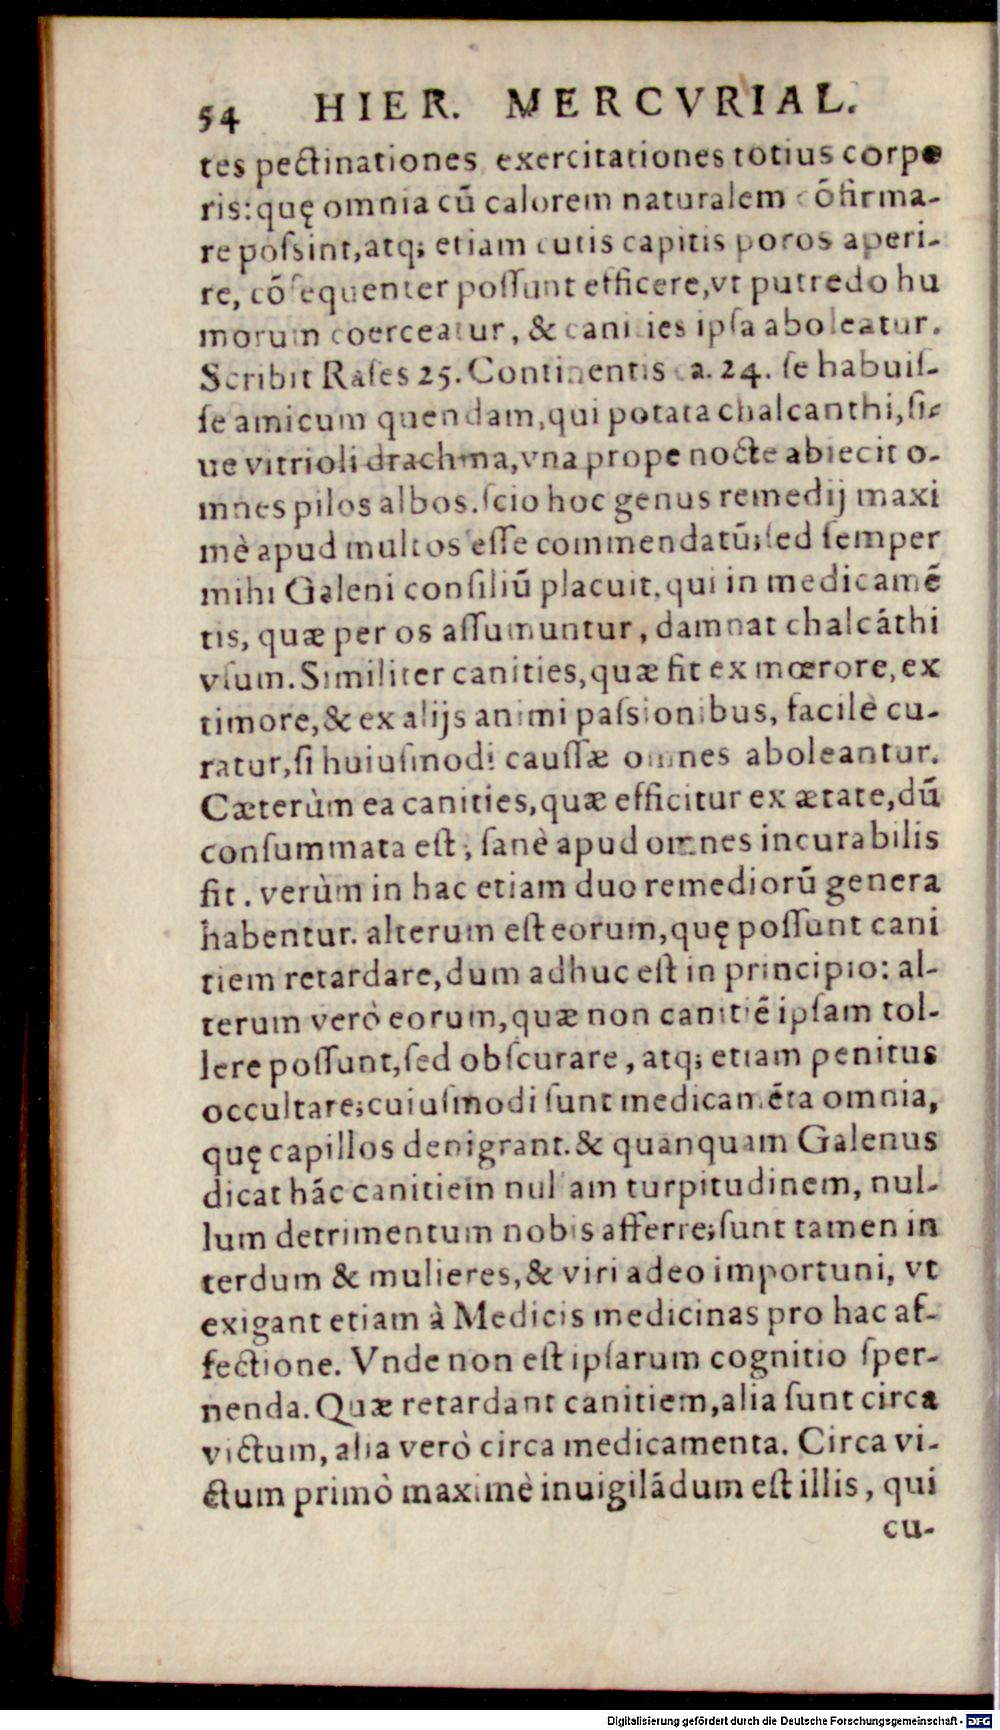 54 HIER. MERCVRIAL.
tes pectinationes, exercitationes totius corpo
ris: quę omnia cũ calorem naturalem cõfirma-
re poſsint, atq; etiam cutis capitis poros aperi-
re, cõſequenter poſſunt efficere, vt putredo hu
morum coerceatur, & canities ipſa aboleatur.
Scribit Raſes 25. Continentis ca. 24. ſe habuiſ-
ſe amicum quendam, qui potata chalcanthi, ſi-
ue vitrioli drachma, vna prope nocte abiecit o-
mnes pilos albos. ſcio hoc genus remedij maxi
mè apud multos eſſe commendatũ; ſed ſemper
mihi Galeni conſiliũ placuit, qui in medicamẽ
tis, quæ per os aſſumuntur, damnat chalcãthi
vſum. Similiter canities, quæ fit ex mœrore, ex
timore, & ex alijs animi paſsionibus, facilè cu-
ratur, ſi huiuſmodi cauſſæ omnes aboleantur.
Cæterùm ea canities, quæ efficitur ex ætate, dũ
conſummata eſt, ſanè apud omnes incurabilis
fit. verùm in hac etiam duo remediorũ genera
habentur. alterum eſt eorum, quę poſſunt cani
tiem retardare, dum adhuc eſt in principio: al-
terum verò eorum, quæ non canitiẽ ipſam tol-
lere poſſunt, ſed obſcurare, atq; etiam penitus
occultare; cuiuſmodi ſunt medicamẽta omnia,
quę capillos denigrant. & quanquam Galenus
dicat hãc canitiem nullam turpitudinem, nul-
lum detrimentum nobis afferre; ſunt tamen in
terdum & mulieres, & viri adeo importuni, vt
exigant etiam à Medicis medicinas pro hac af-
fectione. Vnde non eſt ipſarum cognitio ſper-
nenda. Quæ retardant canitiem, alia ſunt circa
victum, alia verò circa medicamenta. Circa vi-
ctum primò maximè inuigilãdum eſt illis, qui
cu-
Digitalisierung gefördert durch die Deutsche Forschungsgemeinschaft - DFG